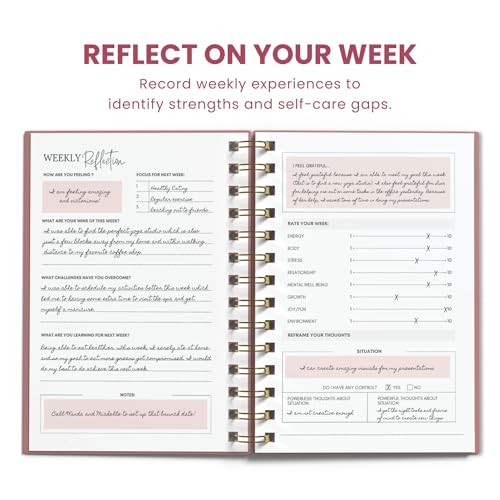 REFLECT ON YOUR WEEK
Record weekly experiences to
identify strengths and self-care gaps.
WEEKLY Reflection
HOW ARE YOU FEELING ?
I am feeling amazing
and victorious!
FOCUS FOR NEXT WEEK:
1. Healthy Eating
2. regular exercise
3. reaching out to friends
WHAT ARE YOUR WINS OF THIS WEEK?
I was able to find the perfect yoga studio which is also
just a few blocks away from my home and within walking
distance to my favorite coffee shop.
WHAT CHALLENGES HAVE YOU OVERCOME?
I was able to schedule my activities better this week which
led me to having some extra time to visit the spa and get
myself a manicure.
WHAT ARE YOU LEARNING FOR NEXT WEEK?
Being able to eat healthier this week, I rarely ate at home
and so my goal to eat more greens got compromised. I would do
my best to do achieve this next week.
NOTES:
Call Wanda and Michelle to set up that brunch date!
I FEEL GRATEFUL...
I feel grateful because I am able to meet my goal this week
(that is to find a new yoga studio). I also feel grateful for
for helping me out on some tasks in the office yesterday, because
of her help, I saved tons of time in doing my presentations.
RATE YOUR WEEK:
ENERGY 1 X 10
BODY 1 X 10
STRESS 1 X 10
RELATIONSHIP 1 X 10
MENTAL WELL BEING 1 X 10
GROWTH 1 X 10
JOY/FUN 1 X 10
ENVIRONMENT 1 X 10
REFRAME YOUR THOUGHTS
SITUATION
I can create amazing visuals for my presentations
DO I HAVE ANY CONTROL? X YES NO
POWERLESS THOUGHTS ABOUT
SITUATION:
I am not creative enough
POWERFUL THOUGHTS ABOUT
SITUATION:
I got the right tools and frame
of mind to create new things